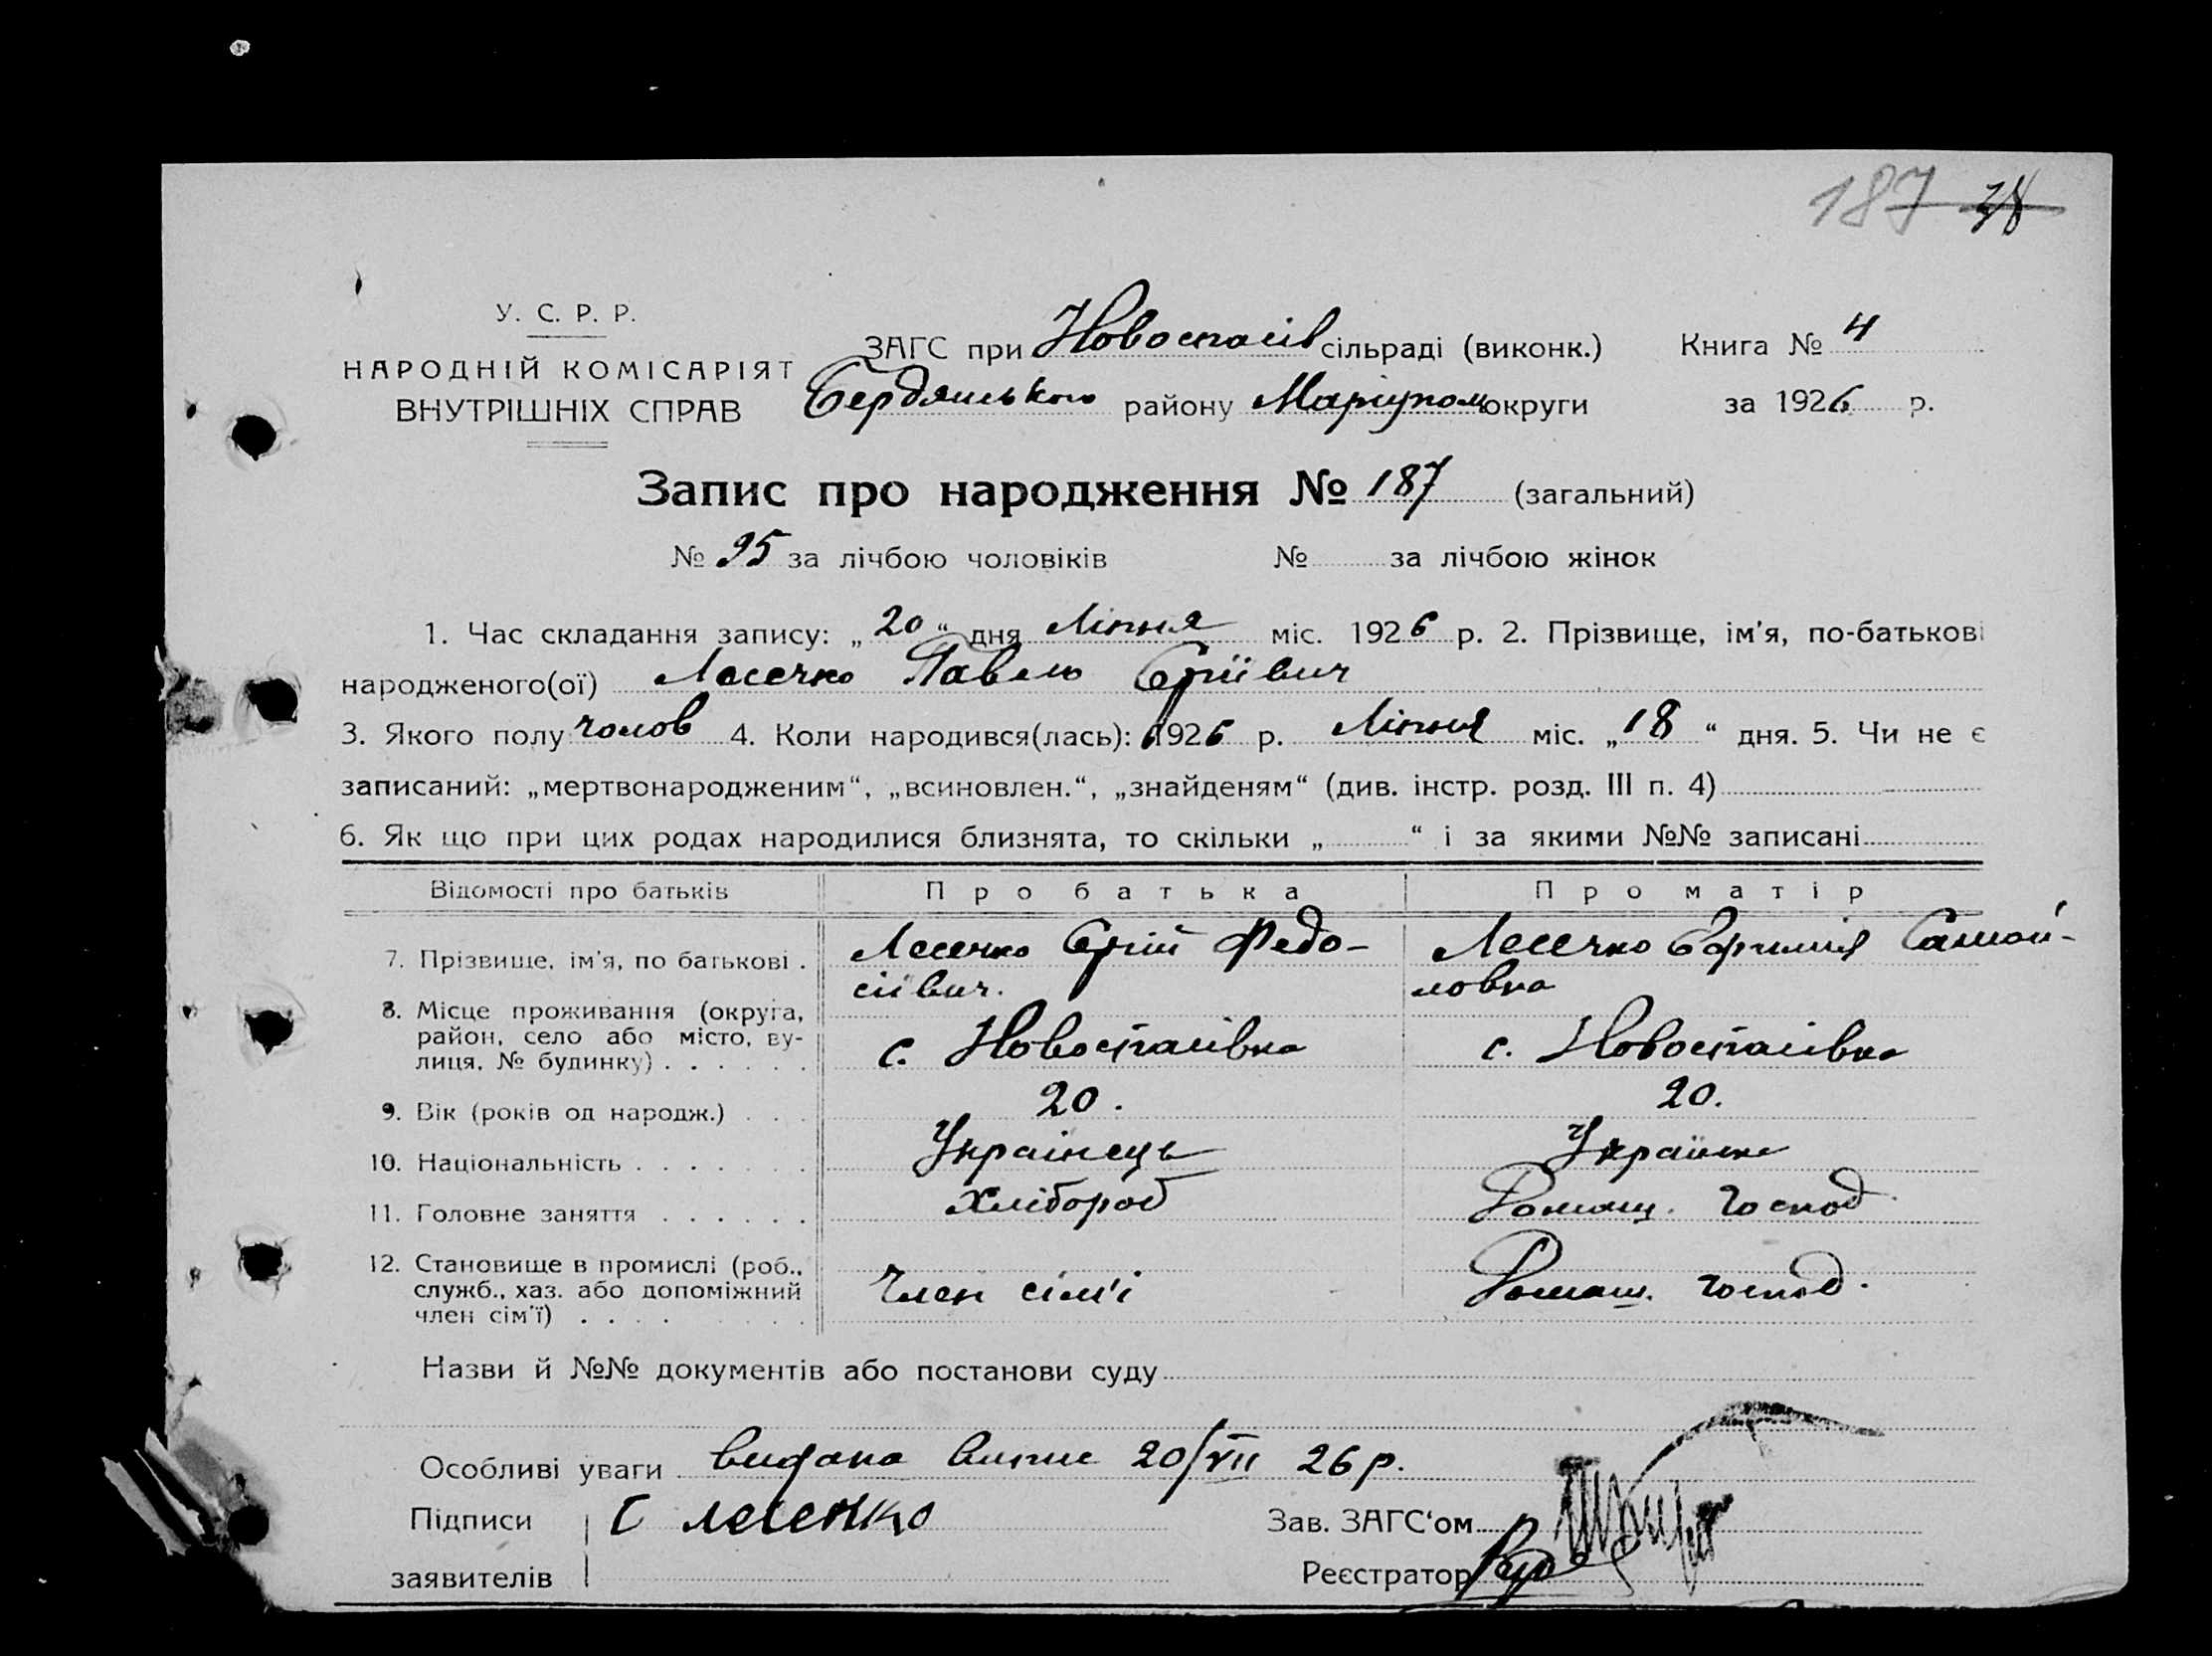 187 38
У. С. Р. Р.
НАРОДНІЙ КОМІСАРІЯТ
ВНУТРІШНІХ СПРАВ
ЗАГС при Новоспасів сільраді (виконк.) Книга № 4
Бердянського району Маріупол округи за 1926 р.
Запис про народження № 187 (загальний)
№ 95 за лічбою чоловіків № за лічбою жінок
1. Час складання запису: „20“ дня Ліпня міс. 1926 р. 2. Прізвище, ім'я, по-батькові
народженого(ої) Лесечко Павло Сергіївич
3. Якого полу чолов 4. Коли народився(лась): 1926 р. Ліпня міс. „18“ дня. 5. Чи не є
записаний: „мертвонародженим“, „всиновлен.“, „знайденям“ (див. інстр. розд. III п. 4)
6. Як що при цих родах народилися близнята, то скільки „ “ і за якими №№ записані
Відомості про батьків Про батька Про матір
7. Прізвище, ім'я, по батькові . Лесечко Сергій Федо- Лесечко Єфимія Самой-
сіївич. ловна
8. Місце проживання (округа,
район, село або місто, ву-
лиця, № будинку) . . . . . . с. Новоспасівка с. Новоспасівка
9. Вік (років од народж.) . . . 20. 20.
10. Національність . . . . . . . Українець Українка
11. Головне заняття . . . . . . Хлібороб Домашн. Господ.
12. Становище в промислі (роб.,
служб., хаз. або допоміжний Член сім'ї Домаш. господ.
член сім'ї) . . . .
Назви й №№ документів або постанови суду
Особливі уваги видана виписк 20/VII 26 р.
Підписи С Лесечко Зав. ЗАГС'ом
заявителів Реєстратор